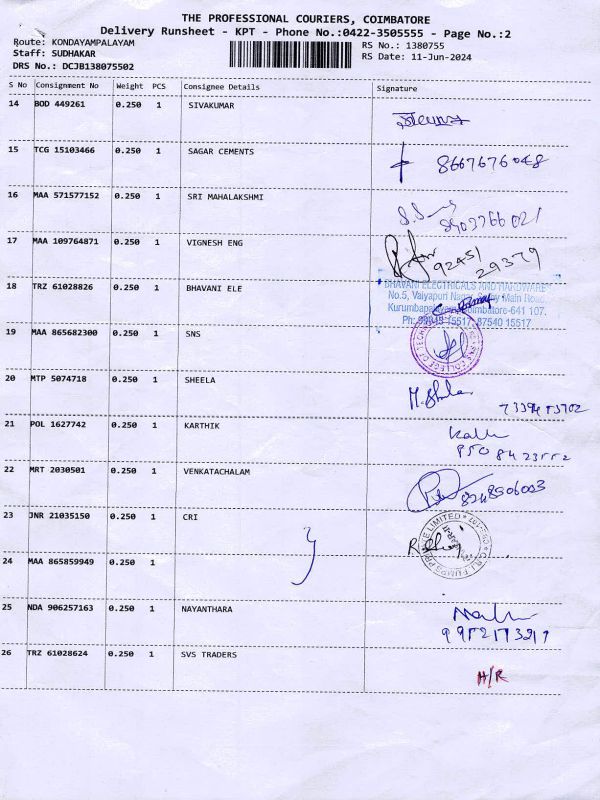 THE PROFESSIONAL COURIERS, COIMBATORE
Delivery Runsheet - KPT - Phone No.:0422-3505555 - Page No.:2
Route: KONDAYAMPALAYAM
Staff: SUDHAKAR
DRS No.: DCJB138075502
RS No.: 1380755
RS Date: 11-Jun-2024
S No Consignment No Weight PCS Consignee Details Signature
14 BOD 449261 0.250 1 SIVAKUMAR
15 TCG 15103466 0.250 1 SAGAR CEMENTS 8667676048
16 MAA 571577152 0.250 1 SRI MAHALAKSHMI
17 MAA 109764871 0.250 1 VIGNESH ENG 92451
29379
18 TRZ 61028826 0.250 1 BHAVANI ELE
BHAVANI ELECTRICALS AND HARDWARE
No.5, Vaiyapuri Nagar, Main Road,
Kurumbapalayam, Coimbatore-641 107.
Ph: 15517, 87540 15517
19 MAA 865682300 0.250 1 SNS
COLLEGE OF
20 MTP 5074718 0.250 1 SHEELA
21 POL 1627742 0.250 1 KARTHIK
22 MRT 2030501 0.250 1 VENKATACHALAM 8248506003
23 JNR 21035150 0.250 1 CRI
C.R.I. PUMPS PRIVATE LIMITED
24 MAA 865859949 0.250 1
25 NDA 906257163 0.250 1 NAYANTHARA
26 TRZ 61028624 0.250 1 SVS TRADERS H/R